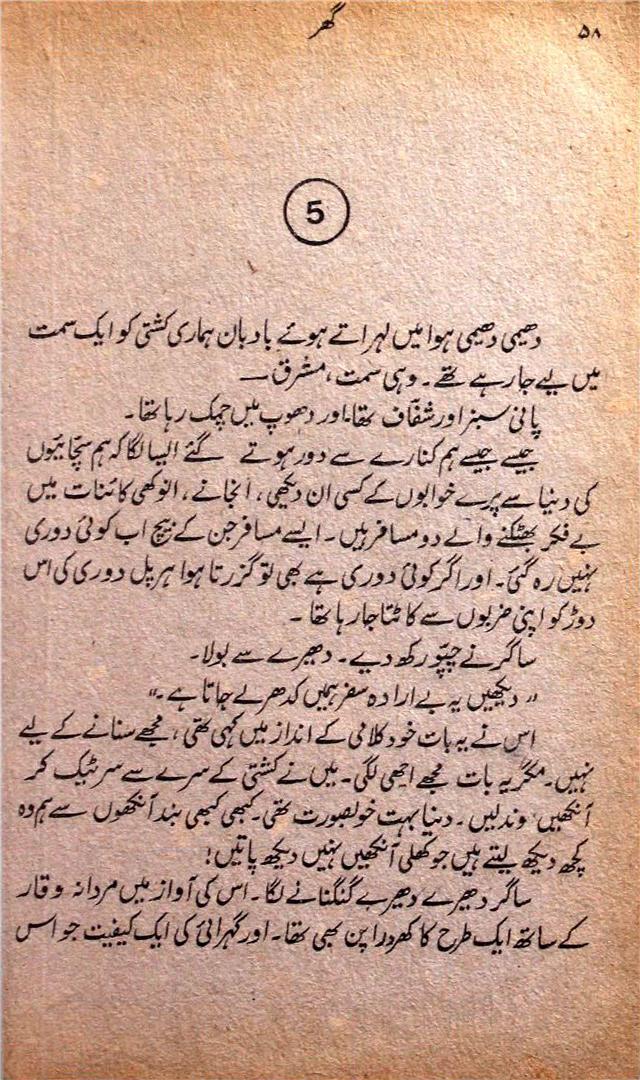 ۵۸
گھر
5
دھیمی دھیمی ہوا میں لہراتے ہوئے بادبان ہماری کشتی کو ایک سمت
میں لیے جا رہے تھے۔ وہی سمت، مشرق —
پانی سبز اور شفّاف تھا اور دھوپ میں چمک رہا تھا۔
جیسے جیسے ہم کنارے سے دور ہوتے گئے ایسا لگا کہ ہم سچّائیوں
کی دنیا سے پرے خوابوں کے کسی ان دیکھی، انجانے، انوکھی کائنات میں
بے فکر بھٹکنے والے دو مسافر ہیں۔ ایسے مسافر جن کے بیچ اب کوئی دوری
نہیں رہ گئی۔ اور اگر کوئی دوری ہے بھی تو گزرتا ہوا ہر پل دوری کی اس
دوڑ کو اپنی ضربوں سے کاٹتا جا رہا تھا۔
ساگر نے چپّو رکھ دیے۔ دھیرے سے بولا۔
"دیکھیں یہ بے ارادہ سفر ہمیں کدھر لے جاتا ہے۔"
اس نے یہ بات خود کلامی کے انداز میں کہی تھی، مجھے سنانے کے لیے
نہیں۔ مگر یہ بات مجھے اچھی لگی۔ میں نے کشتی کے سرے سے سر ٹیک کر
آنکھیں موندلیں۔ دنیا بہت خوبصورت تھی۔ کبھی کبھی بند آنکھوں سے ہم وہ
کچھ دیکھ لیتے ہیں جو کھلی آنکھیں نہیں دیکھ پاتیں!
ساگر دھیرے دھیرے گنگنانے لگا۔ اس کی آواز میں مردانہ وقار
کے ساتھ ایک طرح کا کھردراپن بھی تھا۔ اور گہرائی کی ایک کیفیت جو اس